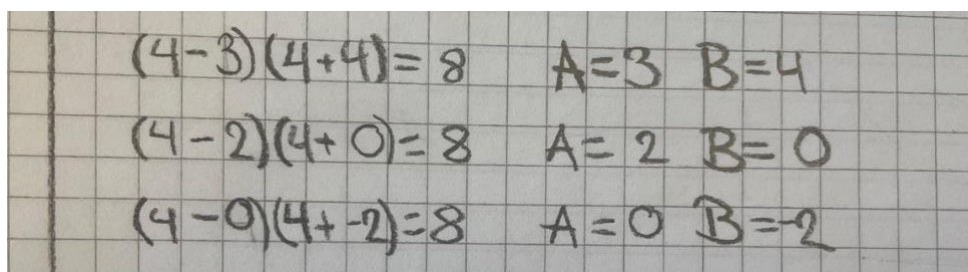 (4-3)(4+4)=8 A=3 B=4
(4-2)(4+0)=8 A=2 B=0
(4-0)(4+-2)=8 A=0 B=-2